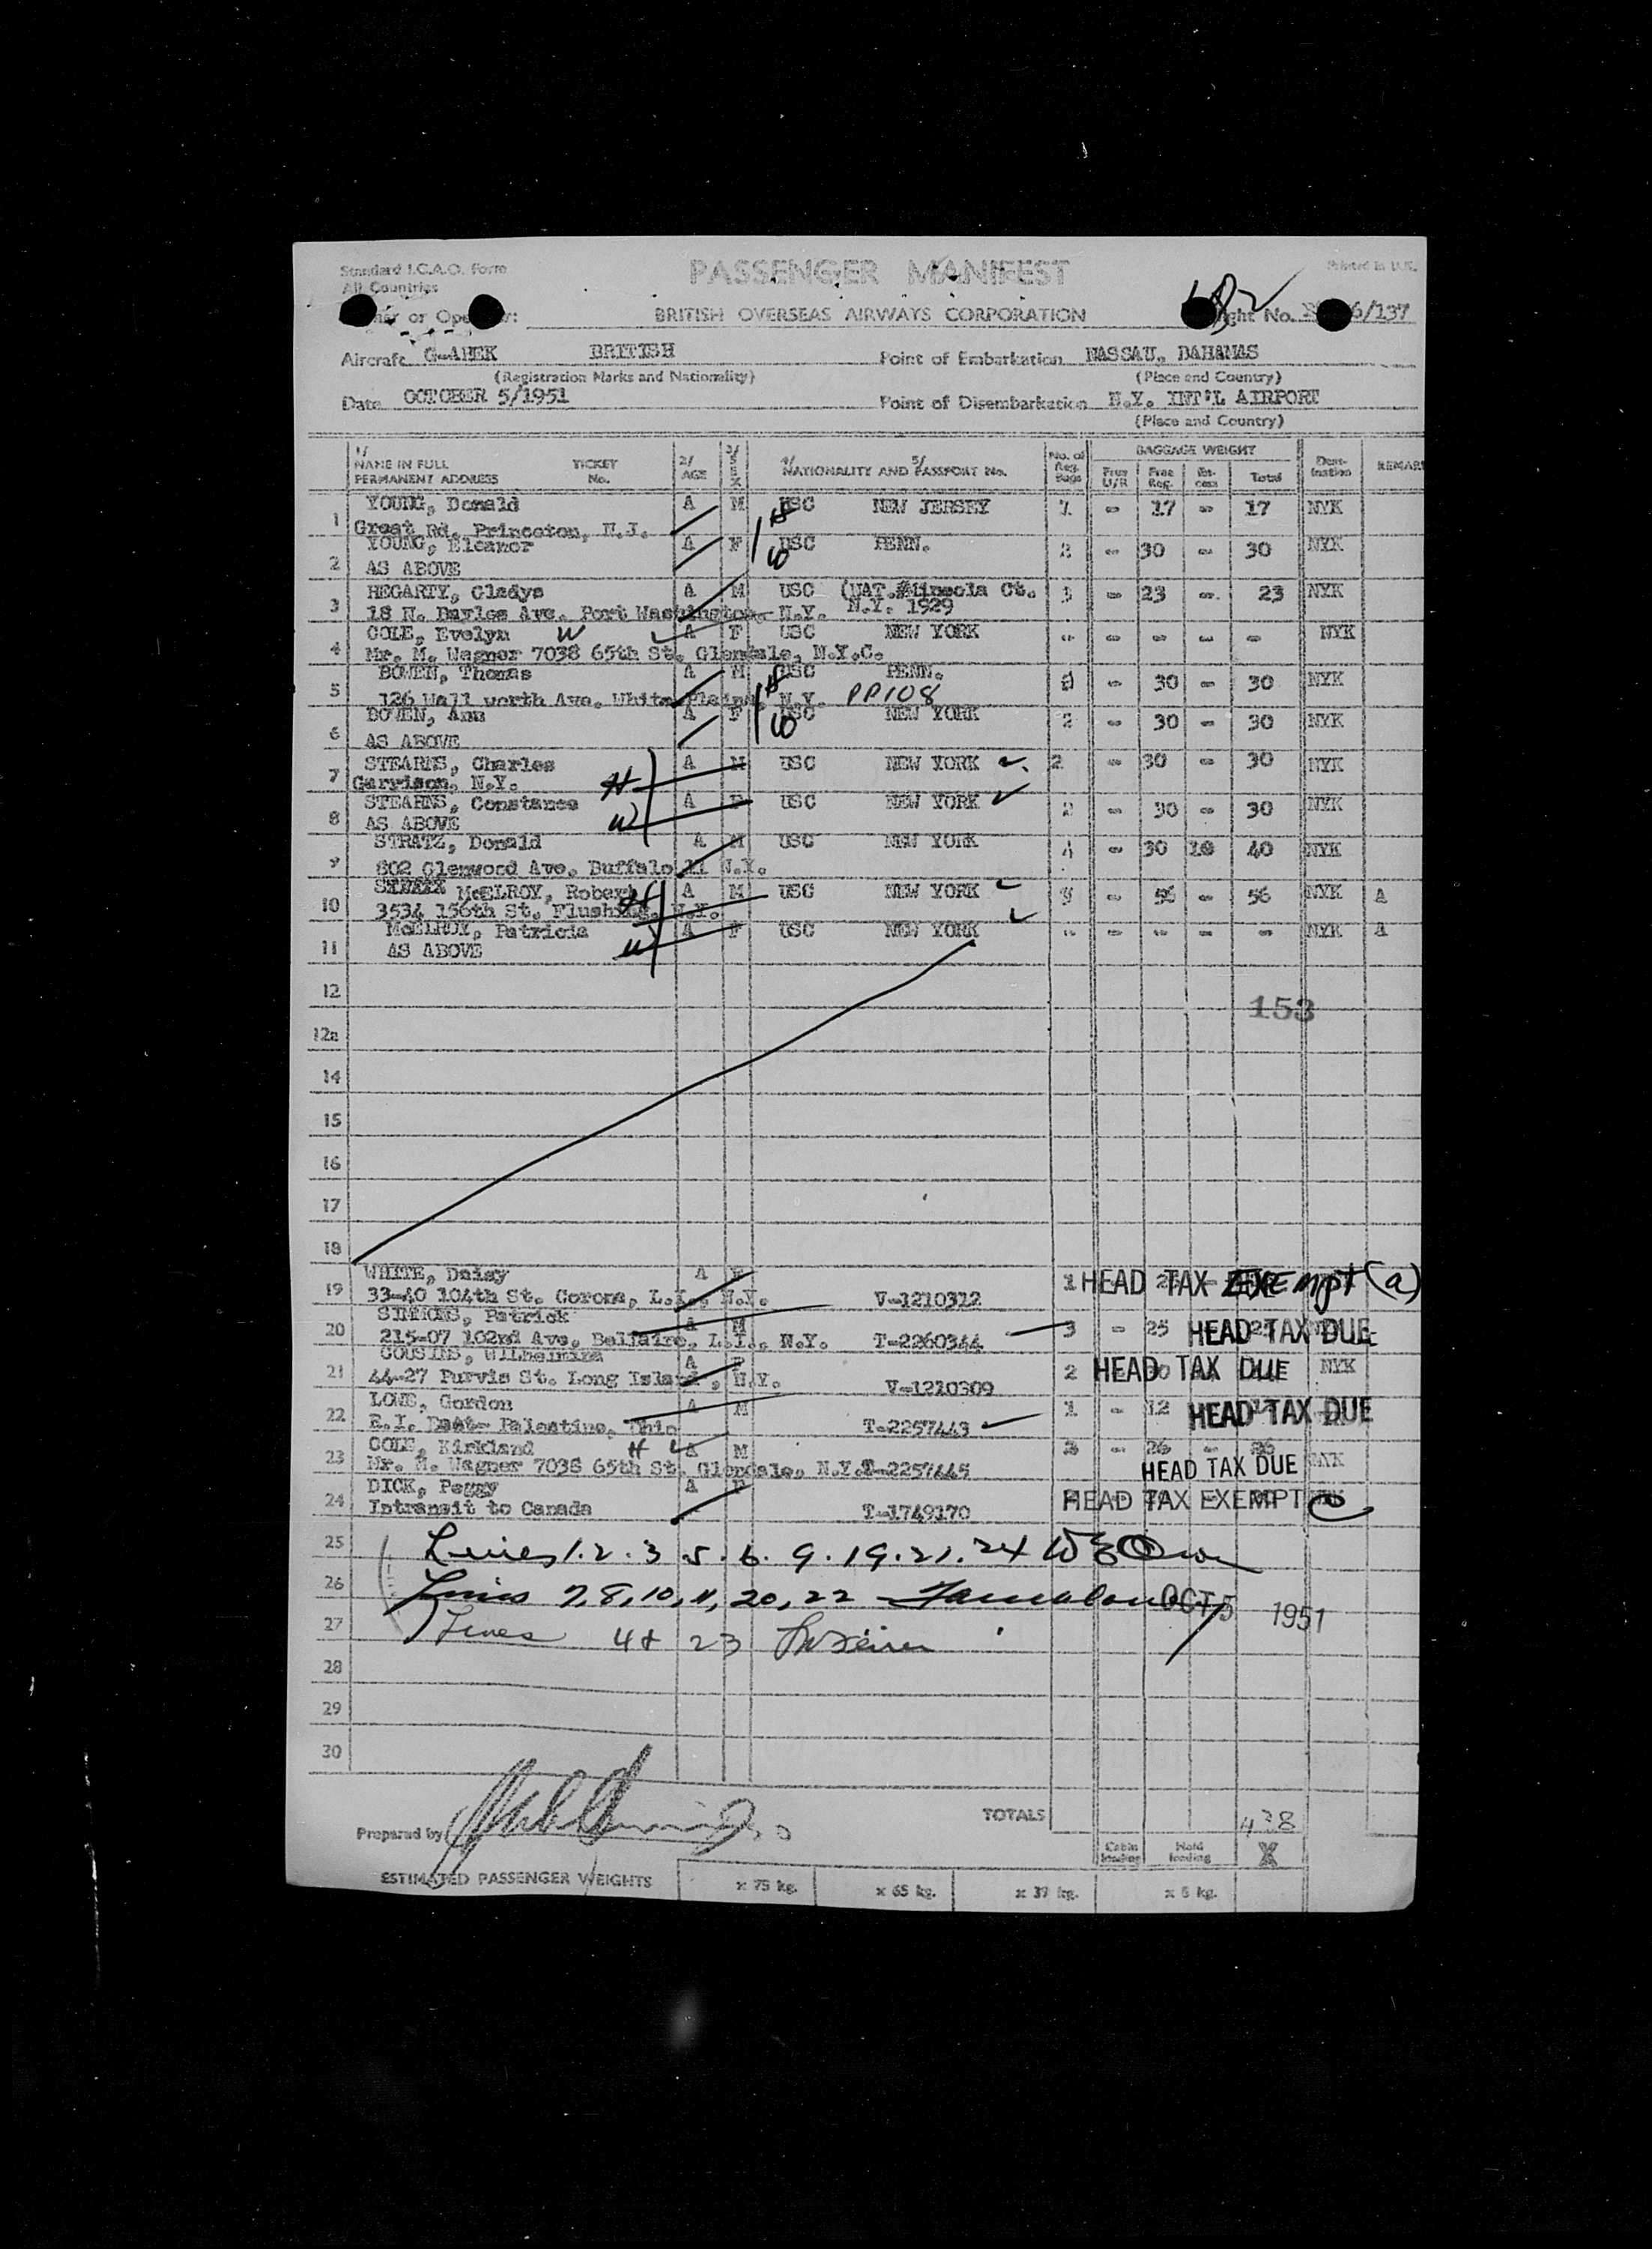 Standard I.C.A.O. Form
All Countries
PASSENGER MANIFEST
Printed in U.K.
BRITISH OVERSEAS AIRWAYS CORPORATION
No. 6/137
Aircraft BRITISH
Point of Embarkation NASSAU, BAHAMAS
(Registration Marks and Nationality)
(Place and Country)
Date OCTOBER 5/1951
Point of Disembarkation N.Y. INT'L AIRPORT
(Place and Country)
1/ NAME IN FULL TICKET No. PERMANENT ADDRESS 2/ AGE 3/ SEX 4/ NATIONALITY AND 5/ PASSPORT No. No. of Reg. Bags BAGGAGE WEIGHT Free U/R Free Reg. Excess Total Destination REMAR
1 YOUNG, Donald A M USC NEW JERSEY - 17 - 17 NYK
Great Rd. Princeton, N.J. H
2 YOUNG, Eleanor A F USC PENN. - 30 - 30 NYK
AS ABOVE W
3 HEGARTY, Gladys A M USC (NAT. Mineola Ct. - 23 - 23 NYK
18 N. Bayles Ave. Port Washington, N.Y. N.Y. 1929
4 COLE, Evelyn W A F USC NEW YORK - - - - NYK
Mr. M. Wagner 7038 65th St. Glendale, N.Y.C.
5 BOWEN, Thomas A M USC PENN. - 30 - 30 NYK
126 Wall worth Ave. White Plains, N.Y. PP108 H
6 BOWEN, Ann A F USC NEW YORK 2 - 30 - 30 NYK
AS ABOVE W
7 STEARNS, Charles A M USC NEW YORK 2 - 30 - 30 NYK
Garrison, N.Y. H
8 STEARNS, Constance A F USC NEW YORK 2 - 30 - 30 NYK
AS ABOVE W
9 STRATZ, Donald A M USC NEW YORK 4 - 30 10 40 NYK
802 Glenwood Ave. Buffalo 11 N.Y.
10 McELROY, Robert H A M USC NEW YORK - 56 - 56 NYK A
3534 156th St. Flushing, N.Y.
11 McELROY, Patricia A F USC NEW YORK - - - - - NYK A
AS ABOVE W
12
153
12a
14
15
16
17
18
19 WHITE, Daisy A F
33-40 104th St. Corona, L.I., N.Y. V-1210312 1 HEAD TAX Exempt (a)
20 SIMMONS, Patrick A M
215-07 102nd Ave, Bellaire, L.I., N.Y. T-2260344 3 - 25 HEAD TAX DUE
21 COUSINS, Wilhelmina A F
44-27 Purvis St. Long Island, N.Y. V-1210309 2 HEAD TAX DUE NYK
22 LOWE, Gordon A M
R.I. East Palestine, Ohio T-2257443 1 - 12 HEAD TAX DUE
23 COLE, Kirkland H A M 3 - 26 - 26 NYK
Mr. M. Wagner 7038 65th St. Glendale, N.Y. T-2257445 HEAD TAX DUE
24 DICK, Peggy A F
Intransit to Canada T-1749170 HEAD TAX EXEMPT
25 Lines 1.2.3 5.6. 9.19.21.24
26 Lines 7,8,10,11,20,22 OCT 5 1951
27 Lines 4 & 23
28
29
30
Prepared by
TOTALS 438
Cabin loading Hold loading X
ESTIMATED PASSENGER WEIGHTS x 75 kg. x 65 kg. x 37 kg. x 8 kg.